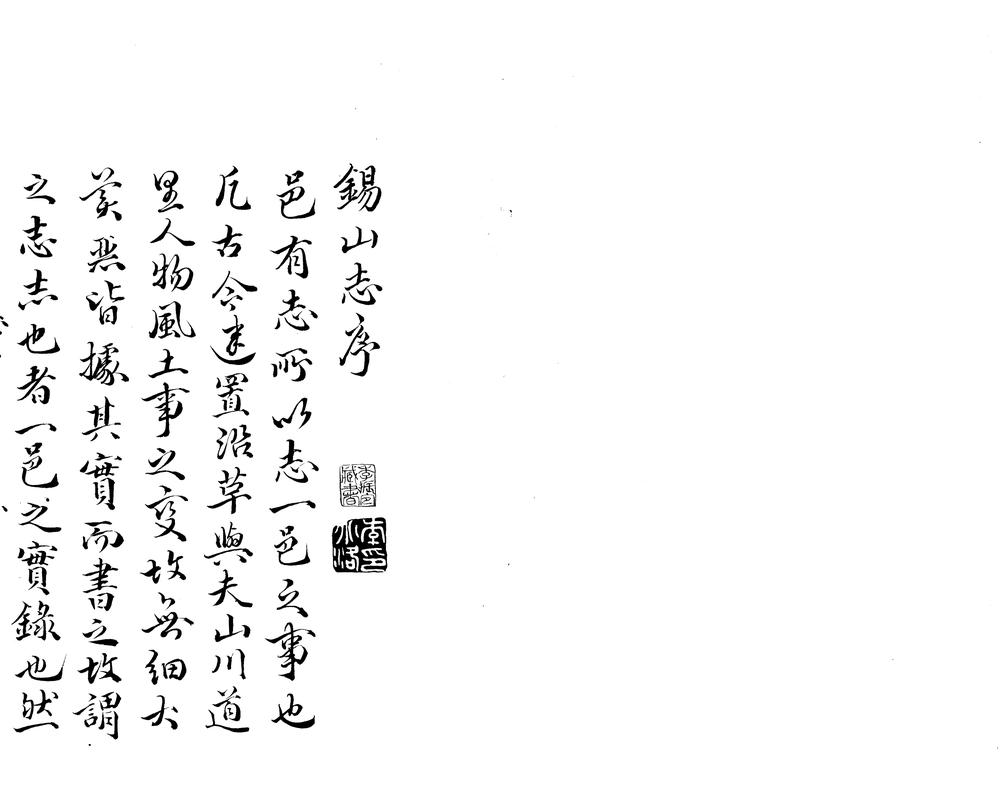 錫山志序
邑有志所以志一邑之事也
凡古今建置沿革與夫山川道
里人物風土事之變故無細大
美惡皆據其實而書之故謂
之志志也者一邑之實錄也然